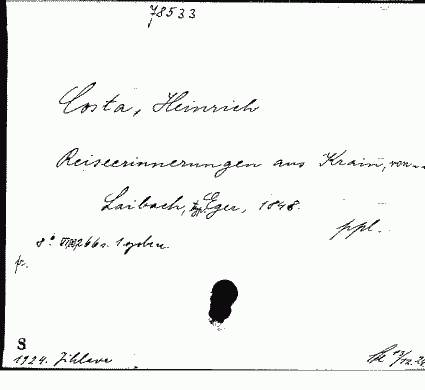 78533
Costa, Heinrich
Reiseerinnerungen aus Krain, von...
Laibach, typ. Eger, 1848.
ppl.
8° 266 s. 1 
pr.
S
1924. Jihlava